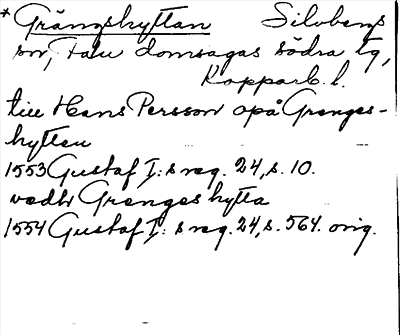 * Grängshyttan Silvbergs
sn, Falu domsagas södra tg,
Kopparb. l.
till Hans Persson opå Grenges-
hytten
1553 Gustaf I:s reg. 24, s. 10.
vedh Grenges hytta
1554 Gustaf I:s reg. 24, s. 564. orig.